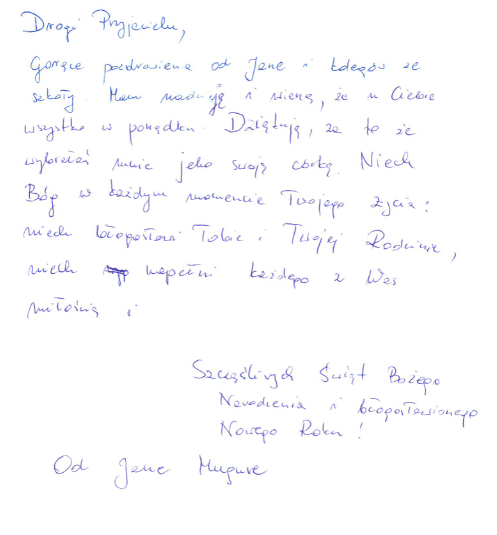 Drogi Przyjacielu,
Gorące pozdrowienia od Jane i kolegów ze
szkoły. Mam nadzieję i wiarę, że u Ciebie
wszystko w porządku. Dziękuję, za to że
wybrałeś mnie jako swoją córkę. Niech
Bóg w każdym momencie Twojego życia!
niech błogosławi Tobie i Twojej Rodzinie,
niech napełni każdego z Was
miłością i
Szczęśliwych Świąt Bożego
Narodzenia i błogosławionego
Nowego Roku!
Od Jane Mugure